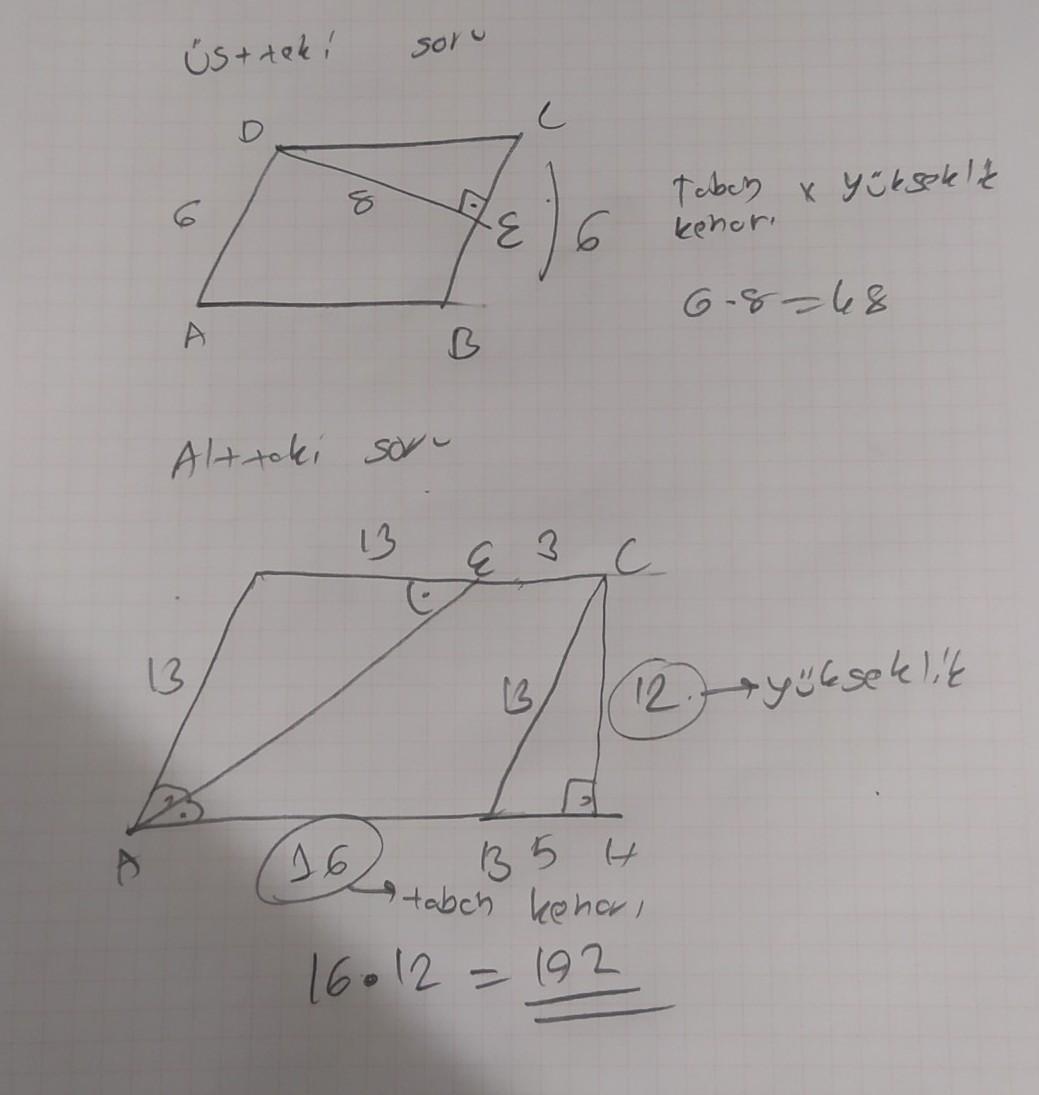 Üstteki soru
D C
8
6 E 6
taban x yükseklik
kenarı
6.8=48
A B
Alttaki soru
13 E 3 C
13 13 12 → yükseklik
A 16 B 5 H
→ taban kenarı
16.12 = 192